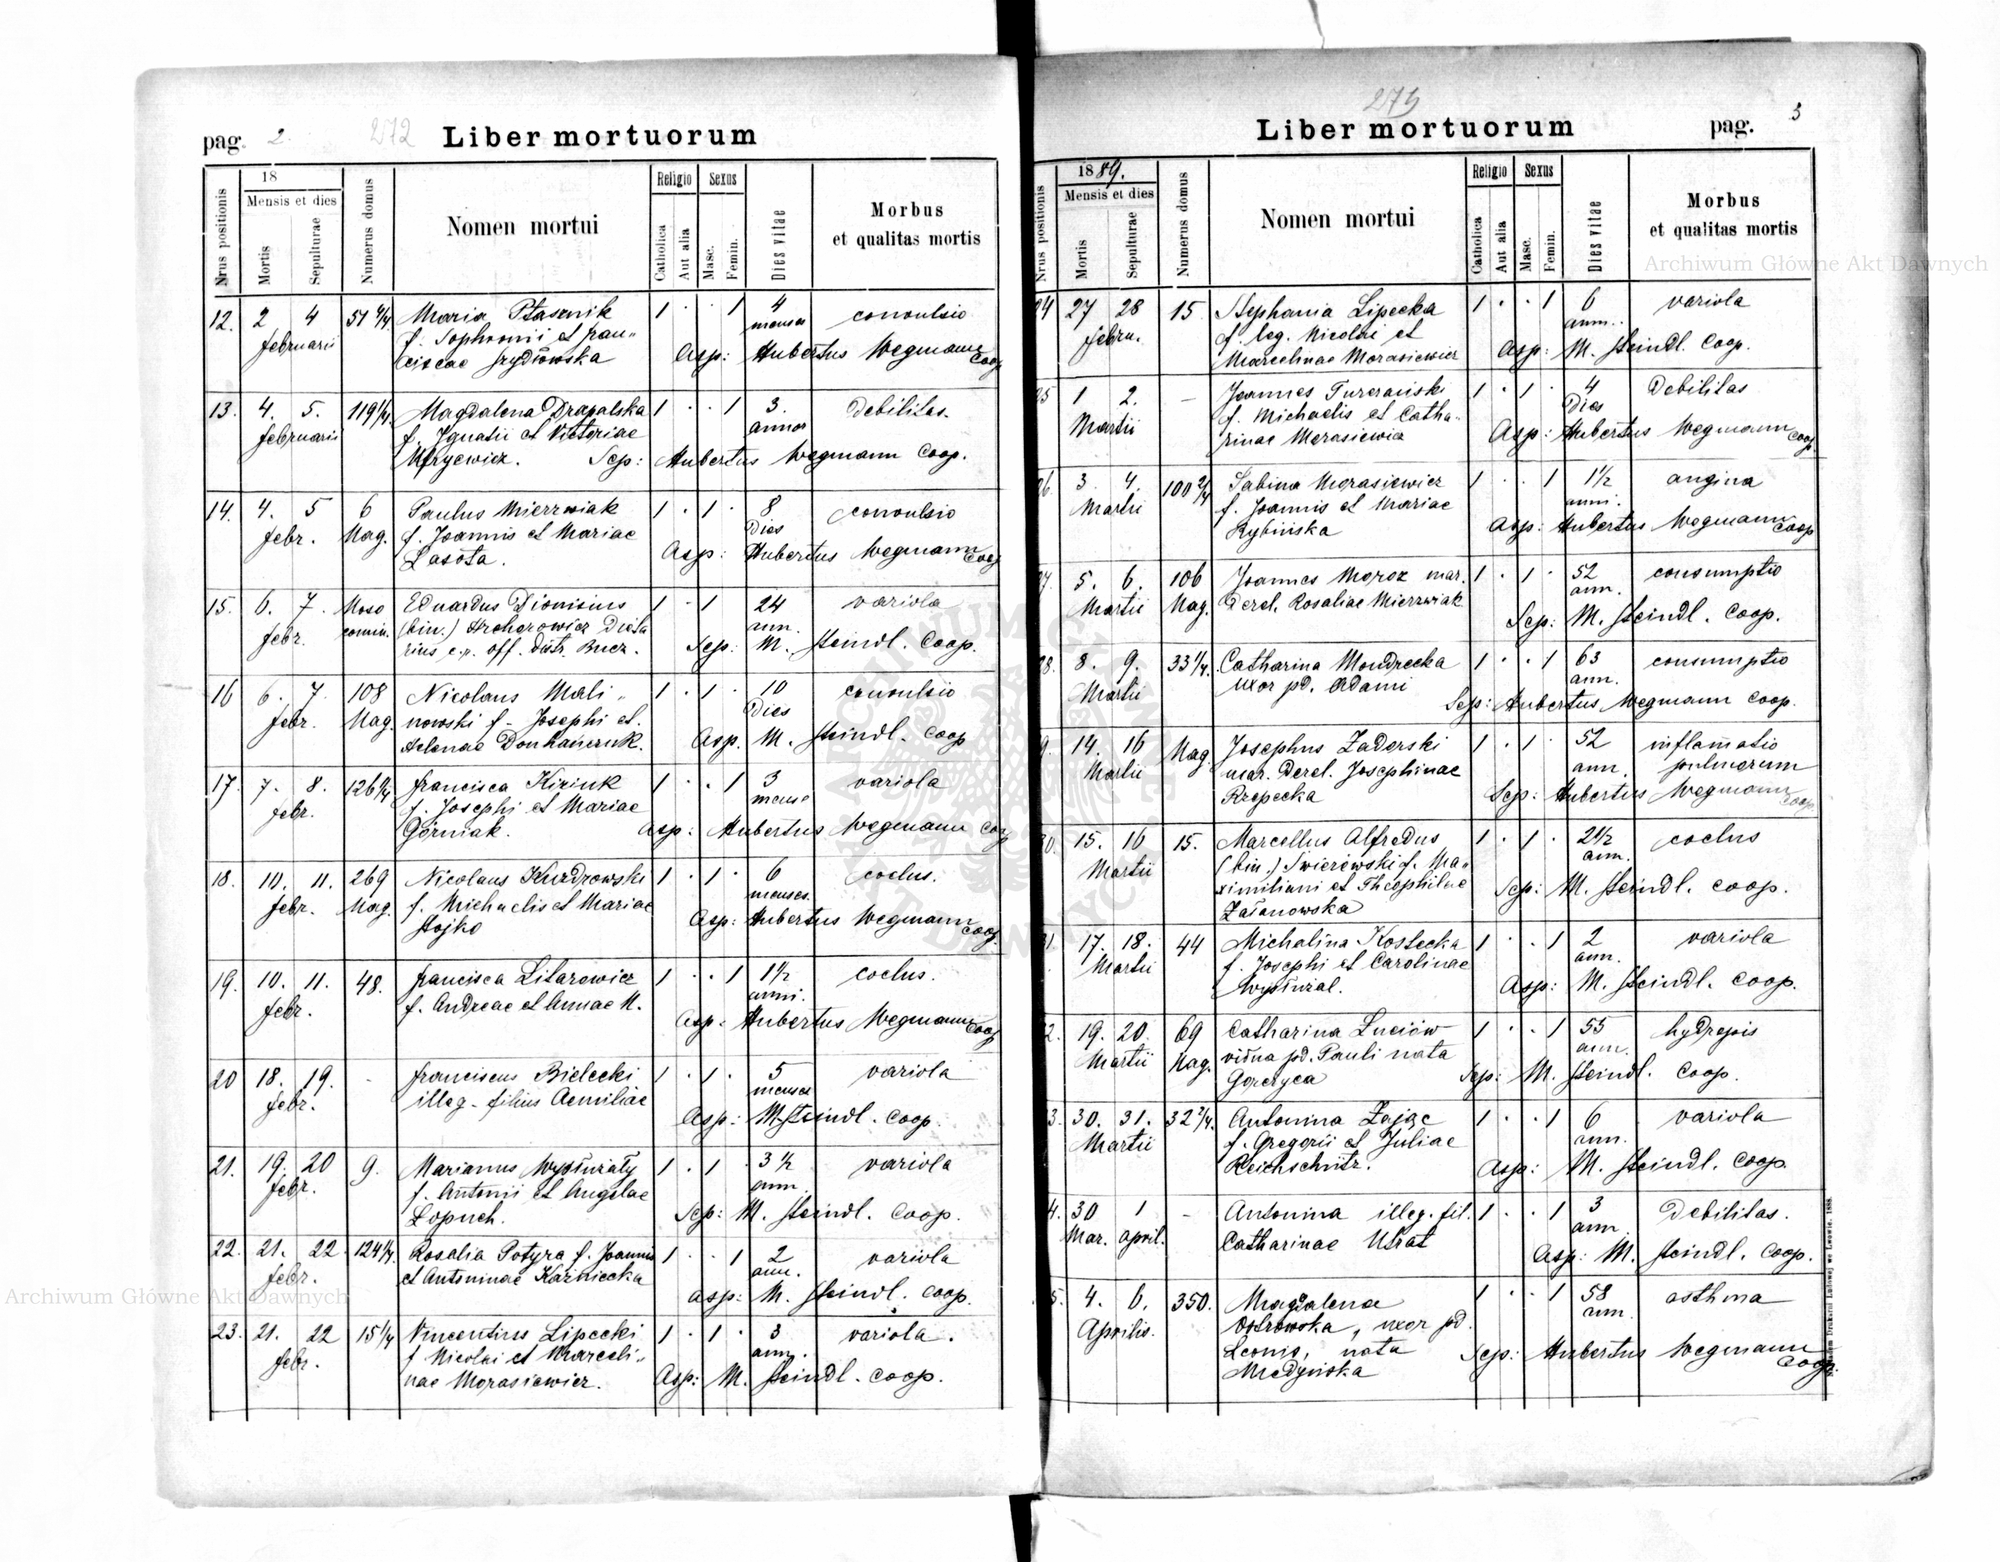 pag. 2. 272 Liber mortuorum
Nrus positionis
18
Mensis et dies
Mortis
Sepulturae
Numerus domus
Nomen mortui
Religio
Catholica
Aut alia
Sexus
Masc.
Femin.
Dies vitae
Morbus
et qualitas mortis
12. 2 4 51 Maria Ptasznik 1 . . 1 4 convulsio
februarii f. Sophronii et Fran„ menses
ciscae Frydrowska Asp: Hubertus Wegmann Coop
13. 4. 5. 119 1/4 Magdalena Drapalska 1 . . 1 3. Debilitas.
februarii f. Ignatii et Victoriae annor
Sep: Hubertus Wegmann Coop.
14. 4. 5 6 Paulus Mierzwiak 1 . 1 . 8 convulsio
febr. Mag. f. Joannis et Mariae Dies
Lasota. Asp: Hubertus Wegmann Coop
15. 6. 7. Eduardus Dionisius 1 . 1 24 variola
febr. (bin.) off. ann.
Sep: M. Steindl. Coop.
16 6. 7. 108 Nicolaus Mali„ 1 . 1 . 10 convulsio
febr. Mag. nowski f. Josephi et Dies
Helenae Asp. M. Steindl. Coop
17. 7. 8. 126 Francisca Kiziuk 1 . . 1 3 variola
febr. f. Josephi et Mariae mense
Górniak. Asp: Hubertus Wegmann Coop
18. 10. 11. 269 Nicolaus Kurdrowski 1 . 1 . 6 coclus.
febr. Mag. f. Michaelis et Mariae menses.
Stojko Asp: Hubertus Wegmann Coop.
19. 10. 11. 48. Francisca Litarowicz 1 . . 1 1 1/2 coclus.
febr. f. Andreae et Annae N. anni.
Asp: Hubertus Wegmann Coop
20 18. 19. - Franciscus Bielecki 1 . 1 . 5 variola
febr. illeg. filius Aemiliae menses
Asp: M. Steindl. Coop.
21. 19. 20 9. Marianus 1 . 1 . 3 1/2 variola
febr. f. Antonii et Angelae ann.
Łopuch. Sep: M. Steindl. Coop.
22. 21. 22 124 1/4 Rosalia Potyra f. Joannis 1 . . 1 2 variola
febr. et Antoninae Kaźniecka ann.
Asp: M. Steindl. Coop.
23. 21. 22 15 1/4 Vincentius Lipecki 1 . 1 . 3 variola.
febr. f Nicolai et Marceli„ ann.
nae Morasiewicz. Asp: M. Steindl. Coop.
273 Liber mortuorum pag. 3
Nrus positionis
1889.
Mensis et dies
Mortis
Sepulturae
Numerus domus
Nomen mortui
Religio
Catholica
Aut alia
Sexus
Masc.
Femin.
Dies vitae
Morbus
et qualitas mortis
24 27 28 15 Stephania Lipecka 1 . . 1 6 variola
febru. f. leg. Nicolai et ann.
Marcelinae Morasiewicz Asp: M. Steindl. Coop.
25 1 2. - Joannes Turczański 1 . 1 . 4 Debilitas
Martii f. Michaelis et Catha„ Dies
rinae Morasiewicz Asp: Hubertus Wegmann Coop.
26. 3. 4. 100 2/4 Sabina Morasiewicz 1 . . 1 1 1/2 angina
Martii f. Joannis et Mariae anni.
Rybińska Asp: Hubertus Wegmann Coop
27. 5. 6. 106 Joannes Moroz mar. 1 . 1 . 52 consumptio
Martii Mag. derel. Rosaliae Mierzwiak ann.
Sep: M. Steindl. Coop.
28. 8. 9. 33 1/4. Catharina Mondrecka 1 . . 1 63 consumptio
Martii uxor pd. Adami ann.
Sep: Hubertus Wegmann Coop.
9. 14. 16 Mag. Josephus Zaderski 1 . 1 . 52 inflamatio
Martii mar. derel. Josephinae ann. pulmorum
Rzepecka Sep: Hubertus Wegmann Coop
30. 15. 16 15. Marcellus Alfredus 1 . 1 . 2 1/2 coclus
Martii (bin.) Świerżewski f. Ma„ ann.
ximiliani et Theophilae Sep: M. Steindl. Coop.
31. 17. 18. 44 Michalina Kostecka 1 . . 1 2 variola
Martii f. Josephi et Carolinae ann.
Asp: M. Steindl. Coop.
2. 19. 20. 69 Catharina Luciów 1 . . 1 55 hydropis
Martii Mag. vidua pd. Pauli nata ann.
Sep: M. Steindl. Coop.
3. 30. 31. 32 2/4. Antonina Zając 1 . . 1 6 variola
Martii f. Gregorii et Juliae ann.
Reinschnitz. Asp: M. Steindl. Coop.
4. 30 1 - Antonina illeg. fil. 1 . . 1 3 Debilitas.
Mar. april. Catharinae Utrat ann
Asp: M. Steindl. Coop.
5. 4. 6. 350. Magdalena 1 . . 1 58 asthma
Aprilis. Ostrowska, uxor pd. ann.
Leonis, nata Sep: Hubertus Wegmann
Medyńska Coop.
Nakładem Drukarni Ludowej we Lwowie. 1888.
Archiwum Główne Akt Dawnych
Archiwum Główne Akt Dawnych
ARCHIWUM GŁÓWNE AKT DAWNYCH